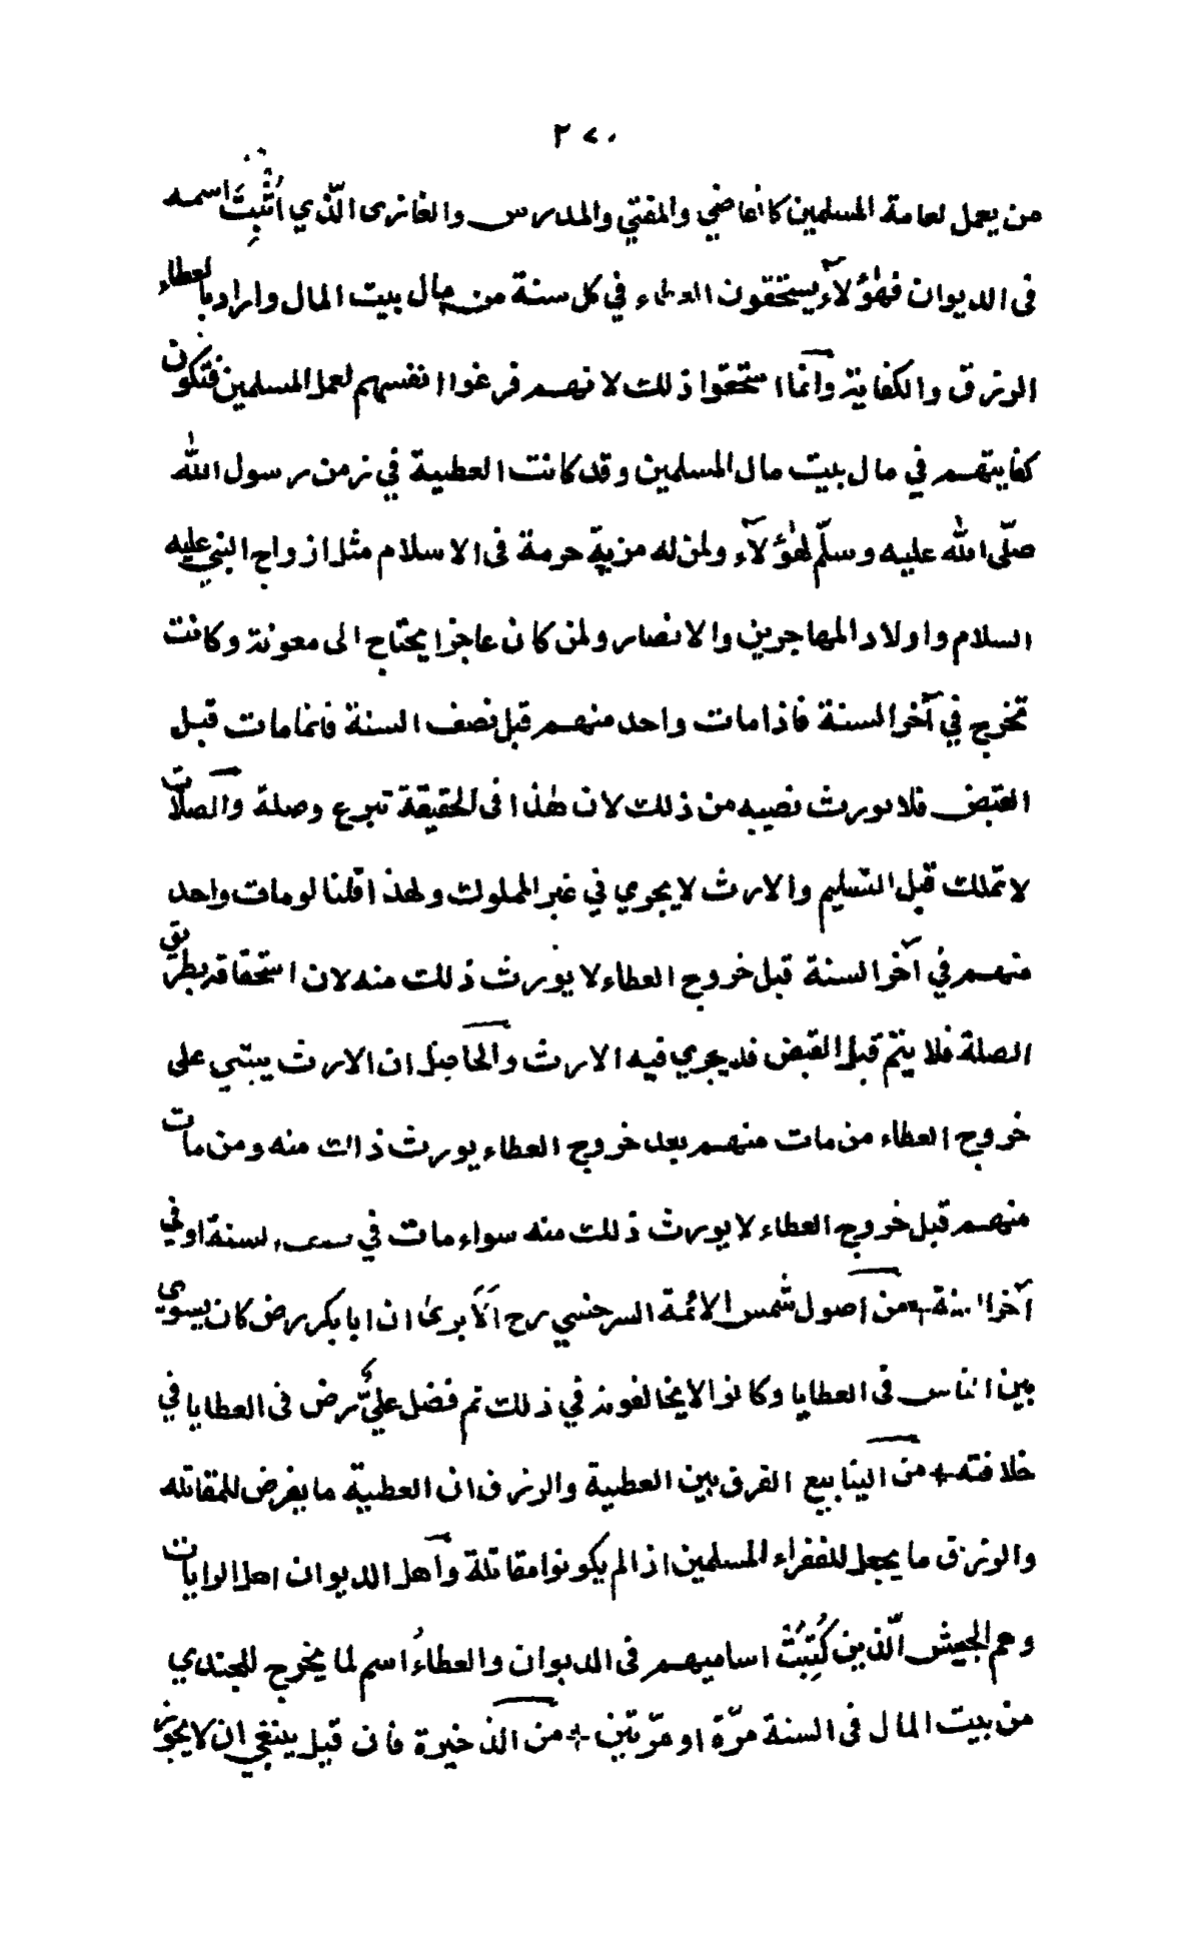 ٢٧٠
من يعمل لعامة المسلمين كالقاضي والمفتي والمدرس والغازى الّذي اُثْبِتَ اسمه
فى الديوان فهٰؤلآء يستحقون العطاء في كل سنة من مال بيت المال واراد بالعطاء
الرزق والكفاية وانما استحقوا ذلك لانهم فرغوا انفسهم لعمل المسلمين فتكون
كفايتهم في مال بيت مال المسلمين وقد كانت العطية في زمن رسول الله
صلّى الله عليه وسلّم لهٰؤلآء ولمن له مزيّة حرمة فى الاسلام مثل ازواج النبي عليه
السلام واولاد المهاجرين والانصار ولمن كان عاجزا يحتاج الى معونة وكانت
تخرج في آخر السنة فاذا مات واحد منهم قبل نصف السنة فانما مات قبل
القبض فلا يورث نصيبه من ذلك لان هٰذا فى الحقيقة تبرع وصلة والصلات
لا تملك قبل التسليم والارث لا يجري في غير المملوك ولهذا قلنا لو مات واحد
منهم في آخر السنة قبل خروج العطاء لا يورث ذلك منه لان استحقاقه بطريق
الصلة فلا يتم قبل القبض فلا يجري فيه الارث والحاصل ان الارث يبتني على
خروج العطاء من مات منهم بعد خروج العطاء يورث ذلك منه ومن مات
منهم قبل خروج العطاء لا يورث ذلك منه سواء مات في السنة او في
آخر السنة + من اصول شمس الائمة السرخسي رح اَلَا يرىٰ ان ابا بكر رض كان يسوي
بين الناس فى العطايا وكانوا لا يخالفونه في ذلك ثم فضل عليٌّ رض فى العطايا في
خلافته + من الينابيع الفرق بين العطية والرزق ان العطية ما يفرض للمقاتله
والرزق ما يجعل للفقراء المسلمين اذا لم يكونوا مقاتلة وآهل الديوان اهل الرايات
وهم الجيش الّذين كُتِبَتْ اساميهم فى الديوان والعطاءُ اسم لما يخرج للجندي
من بيت المال فى السنة مرّة او مرّتين + من الذخيرة فان قيل ينبغي ان لا يجوز